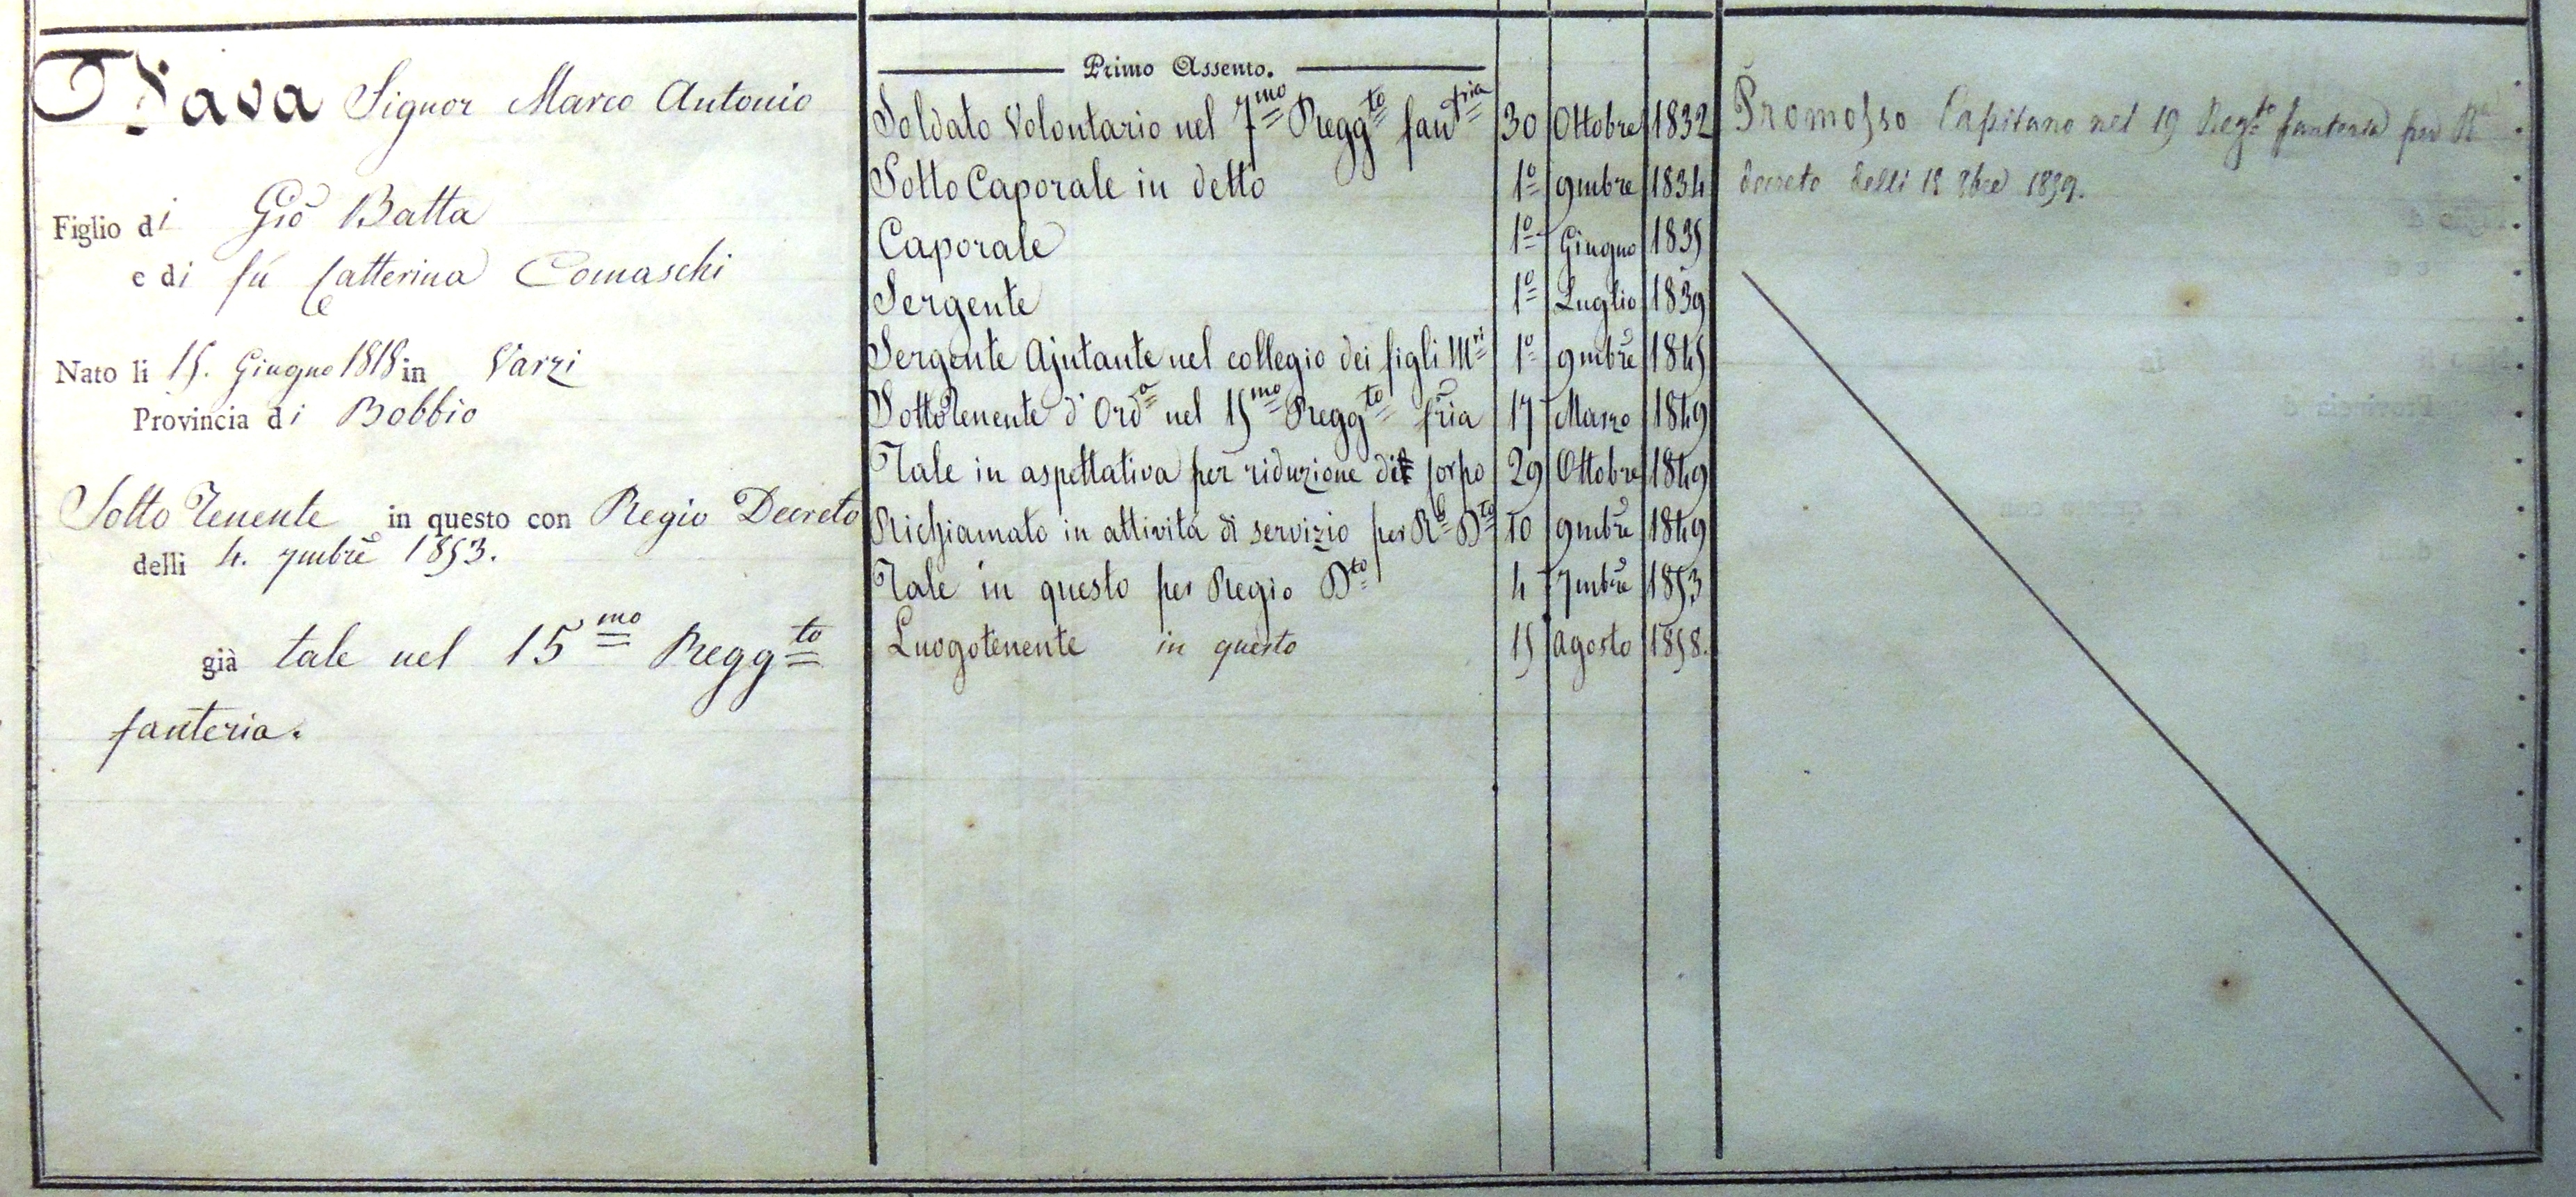 Nava Signor Marco Antonio
Figlio di Gio Batta
e di fú Catterina Comaschi
Nato li 15. Giugno 1818 in Varzi
Provincia di Bobbio
Sotto Tenente in questo con Regio Decreto
delli 4. 7mbre 1853.
già tale nel 15mo Reggto
fanteria.
Primo Assento.
Soldato Volontario nel 7mo Reggto fantria 30 Ottobre 1832
Sotto Caporale in detto 1o 9mbre 1834
Caporale 1o Giugno 1835
Sergente 1o Luglio 1839
Sergente Ajutante nel collegio dei figli Mri 1o 9mbre 1845
Sotto Tenente d'Orda nel 15mo Reggto fria 17 Marzo 1849
Tale in aspettativa per riduzione di Corpo 29 Ottobre 1849
Richiamato in attività di servizio per Ro Dto 10 9mbre 1849
Tale in questo per Regio Dto 4 7mbre 1853
Luogotenente in questo 15 Agosto 1858.
Promosso Capitano nel 19 Regto fanteria per
decreto delli 1859.